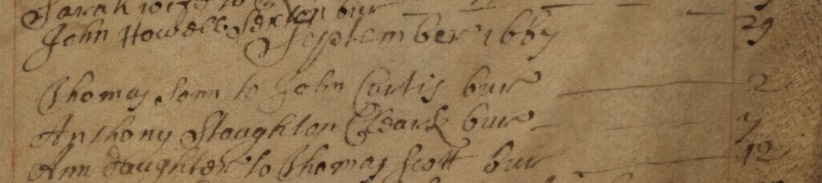 Sarah to bur
John Howell Sexton bur 29
September 1687
Thomas Sonn to John Curtis bur 2
Anthony Staughton Cleark bur 7
Ann daughter to Thomas Scott bur 12